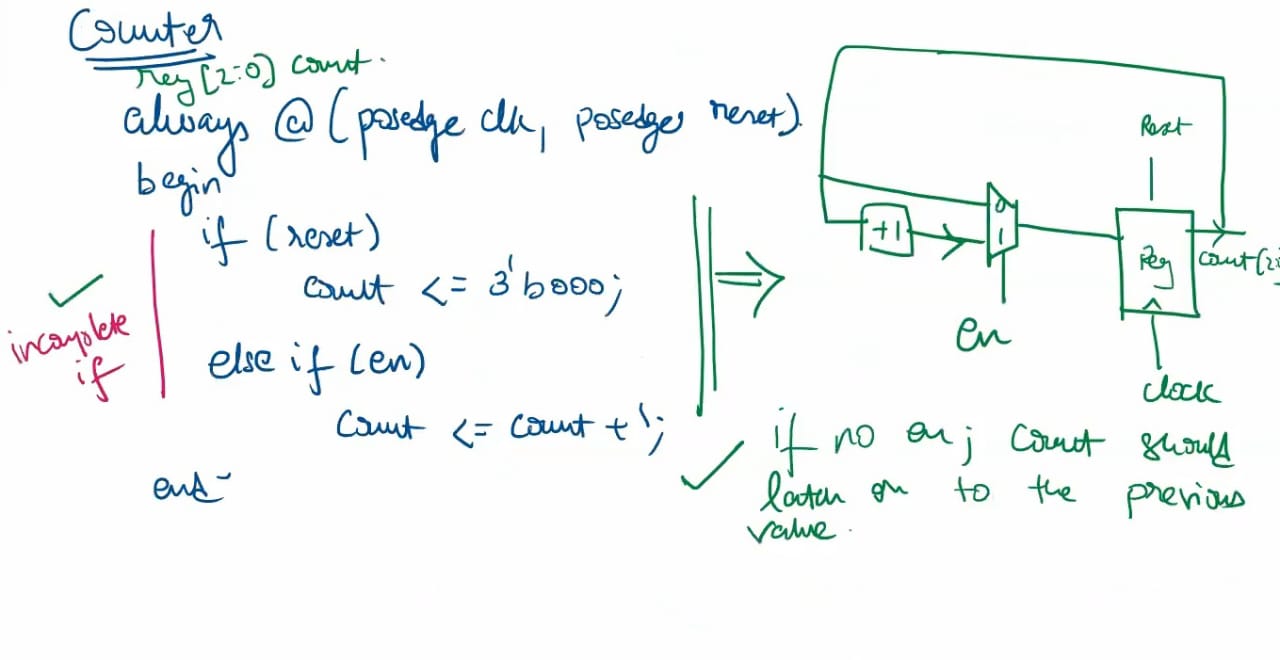 Counter
reg [2:0] count.
always @ (posedge clk, posedge reset)
begin
if (reset)
count <= 3'b000;
else if (en)
count <= count + 1;
end
incomplete
if
+1
0
1
en
Reset
Reg
count[2:
clock
if no en; count should
latch on to the previous
value.